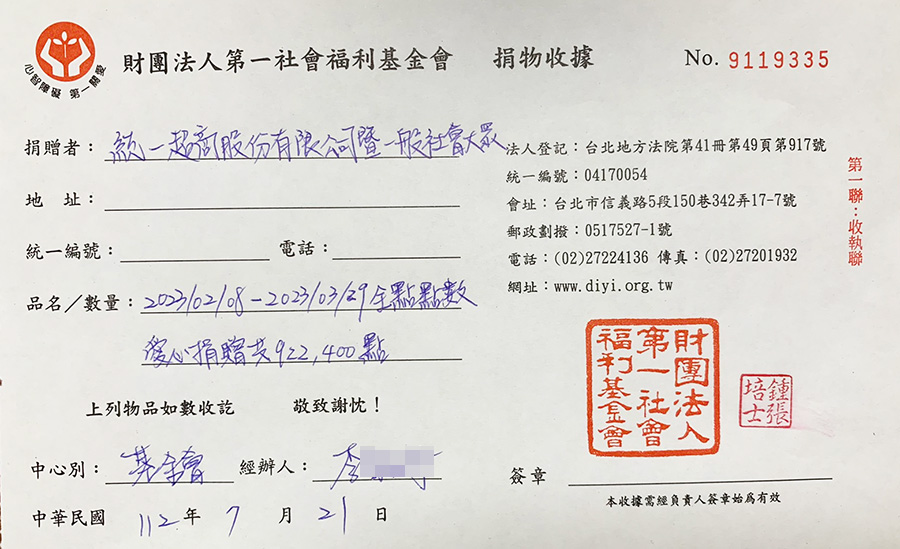 心智障礙 第一關愛
財團法人第一社會福利基金會 捐物收據 No. 9119335
捐贈者：統一超商股份有限公司暨一般社會大眾
地 址：
統一編號： 電話：
品名／數量：2023/02/08-2023/03/29全點點數
愛心捐贈共922,400點
上列物品如數收訖 敬致謝忱！
中心別：基金會 經辦人：李
中華民國 112 年 7 月 21 日
法人登記：台北地方法院第41冊第49頁第917號
統一編號：04170054
會址：台北市信義路5段150巷342弄17-7號
郵政劃撥：0517527-1號
電話：(02)27224136 傳真：(02)27201932
網址：www.diyi.org.tw
第一聯：收執聯
財團法人
第一社會
福利基金會
鍾張
培士
簽章
本收據需經負責人簽章始為有效